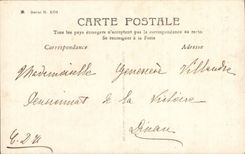 CARTE POSTALE
Tous les pays étrangers n'acceptent pas la correspondance au recto.
Se renseigner à la Poste
Correspondance Adresse
Mademoiselle Geneviève
Pensionnat de la Victoire
Dinan